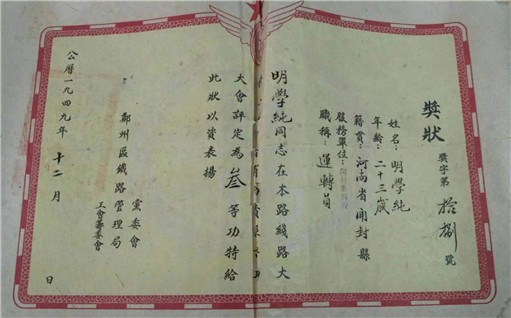 獎狀
獎字第拾捌號
姓名：明學純
年齡：二十三歲
籍貫：河南省開封縣
服務單位：
職稱：運轉員
明學純同志在本路綫路大
大會評定為叁等功特給
此狀以資表揚
鄭州區鐵路管理局
黨委會
工會籌委會
公曆一九四九年十二月 日